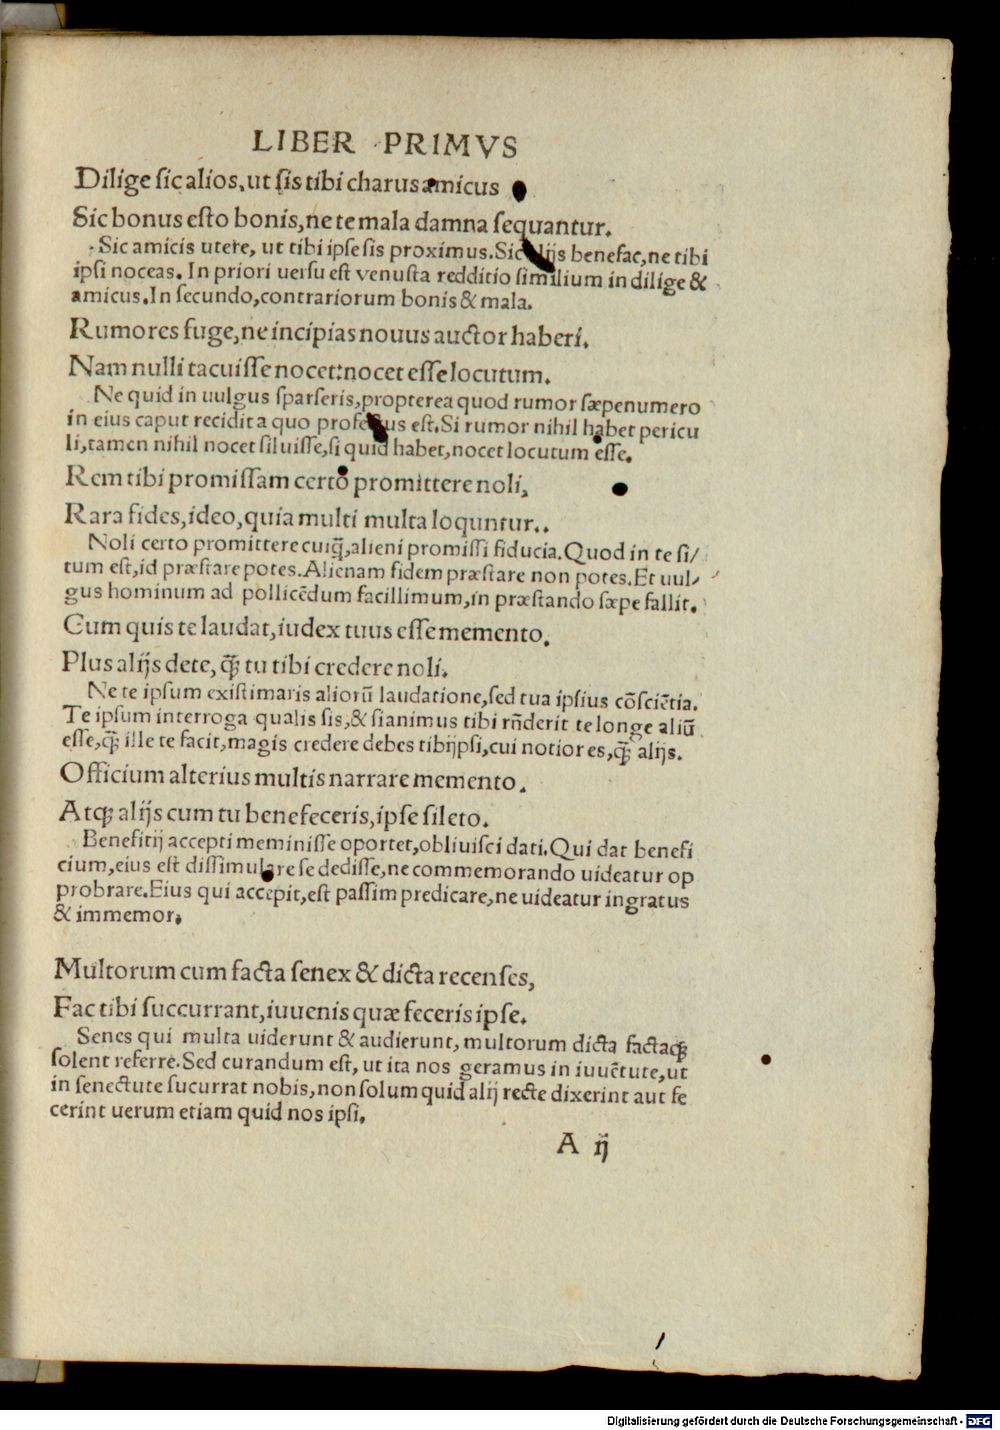 LIBER PRIMVS
Dilige sic alios, ut sis tibi charus amicus
Sic bonus esto bonis, ne te mala damna sequantur.
Sic amicis utere, ut tibi ipse sis proximus. Sic alijs benefac, ne tibi
ipsi noceas. In priori uersu est venusta redditio similium in dilige &
amicus. In secundo, contrariorum bonis & mala.
Rumores fuge, ne incipias nouus auctor haberi.
Nam nulli tacuisse nocet: nocet esse locutum.
Ne quid in uulgus sparseris, propterea quod rumor sæpenumero
in eius caput recidit a quo profectus est. Si rumor nihil habet pericu
li, tamen nihil nocet siluisse, si quid habet, nocet locutum esse.
Rem tibi promissam certo promittere noli,
Rara fides, ideo, quia multi multa loquntur..
Noli certo promittere cuiq̃, alieni promissi fiducia. Quod in te si/
tum est, id præstare potes. Alienam fidem præstare non potes. Et uul/
gus hominum ad pollicẽdum facillimum, in præstando sæpe fallit.
Cum quis te laudat, iudex tuus esse memento.
Plus alijs de te, q̃ tu tibi credere noli.
Ne te ipsum existimaris aliorũ laudatione, sed tua ipsius cõsciẽtia.
Te ipsum interroga qualis sis, & si animus tibi rñderit te longe aliũ
esse, q̃ ille te facit, magis credere debes tibijpsi, cui notior es, q̃ alijs.
Officium alterius multis narrare memento.
Atq; alijs cum tu benefeceris, ipse sileto.
Benefitij accepti meminisse oportet, obliuisci dati. Qui dat benefi
cium, eius est dissimulare se dedisse, ne commemorando uideatur op
probrare. Eius qui accepit, est passim predicare, ne uideatur ingratus
& immemor.
Multorum cum facta senex & dicta recenses,
Fac tibi succurrant, iuuenis quæ feceris ipse.
Senes qui multa uiderunt & audierunt, multorum dicta factaq;
solent referre. Sed curandum est, ut ita nos geramus in iuuẽtute, ut
in senectute sucurrat nobis, non solum quid alij recte dixerint aut fe
cerint uerum etiam quid nos ipsi.
A ij
1
Digitalisierung gefördert durch die Deutsche Forschungsgemeinschaft - DFG